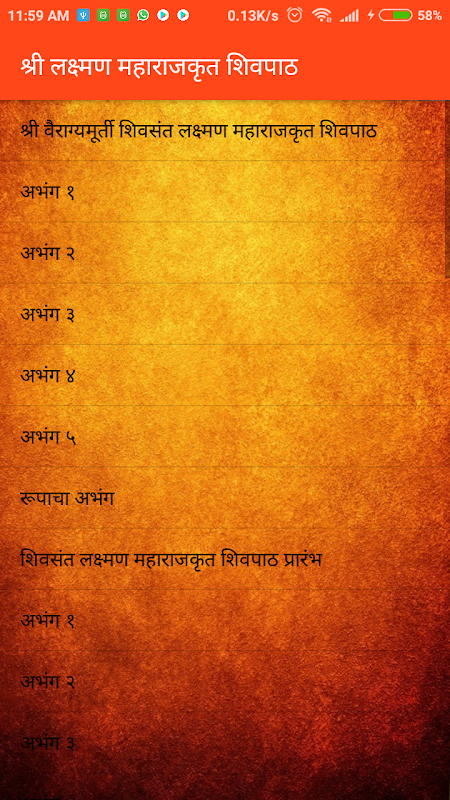 11:59 AM 0.13K/s 58%
श्री लक्ष्मण महाराजकृत शिवपाठ
श्री वैराग्यमूर्ती शिवसंत लक्ष्मण महाराजकृत शिवपाठ
अभंग १
अभंग २
अभंग ३
अभंग ४
अभंग ५
रूपाचा अभंग
शिवसंत लक्ष्मण महाराजकृत शिवपाठ प्रारंभ
अभंग १
अभंग २
अभंग ३